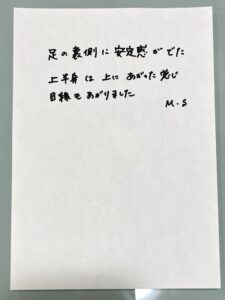 足の裏側に安定感がでた
上半身は上にあがった感じ
目線もあがりました
M.S